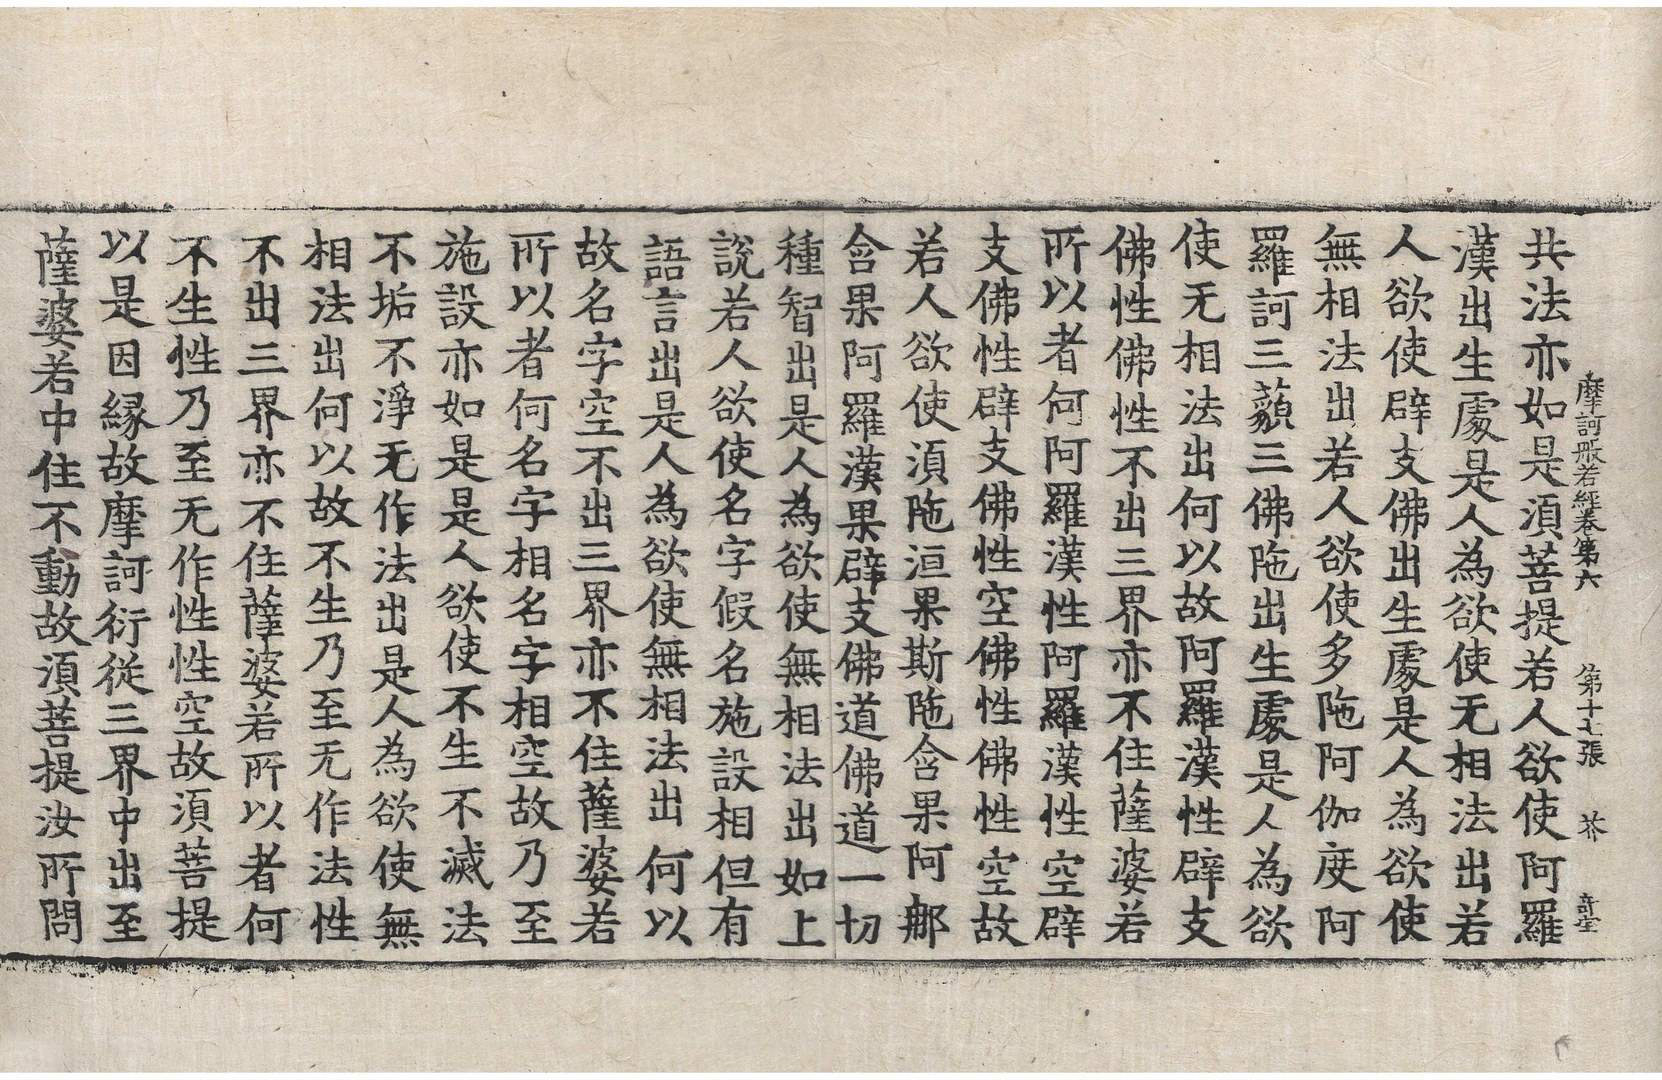 摩訶般若經卷第六　第十七張　芥　奇至
共法亦如是湏菩提若人欲使阿羅
漢出生處是人為欲使无相法出若
人欲使辟支佛出生處是人為欲使
無相法出若人欲使多陁阿伽度阿
羅訶三藐三佛陁出生處是人為欲
使无相法出何以故阿羅漢性辟支
佛性佛性不出三界亦不住薩婆若
所以者何阿羅漢性阿羅漢性空辟
支佛性辟支佛性空佛性佛性空故
若人欲使湏陁洹果斯陁含果阿那
含果阿羅漢果辟支佛道佛道一切
種智出是人為欲使無相法出如上
說若人欲使名字假名施設相但有
語言出是人為欲使無相法出何以
故名字空不出三界亦不住薩婆若
所以者何名字相名字相空故乃至
施設亦如是是人欲使不生不滅法
不垢不淨无作法出是人為欲使無
相法出何以故不生乃至无作法性
不出三界亦不住薩婆若所以者何
不生性乃至无作性性空故湏菩提
以是因縁故摩訶衍從三界中出至
薩婆若中住不動故湏菩提汝所問